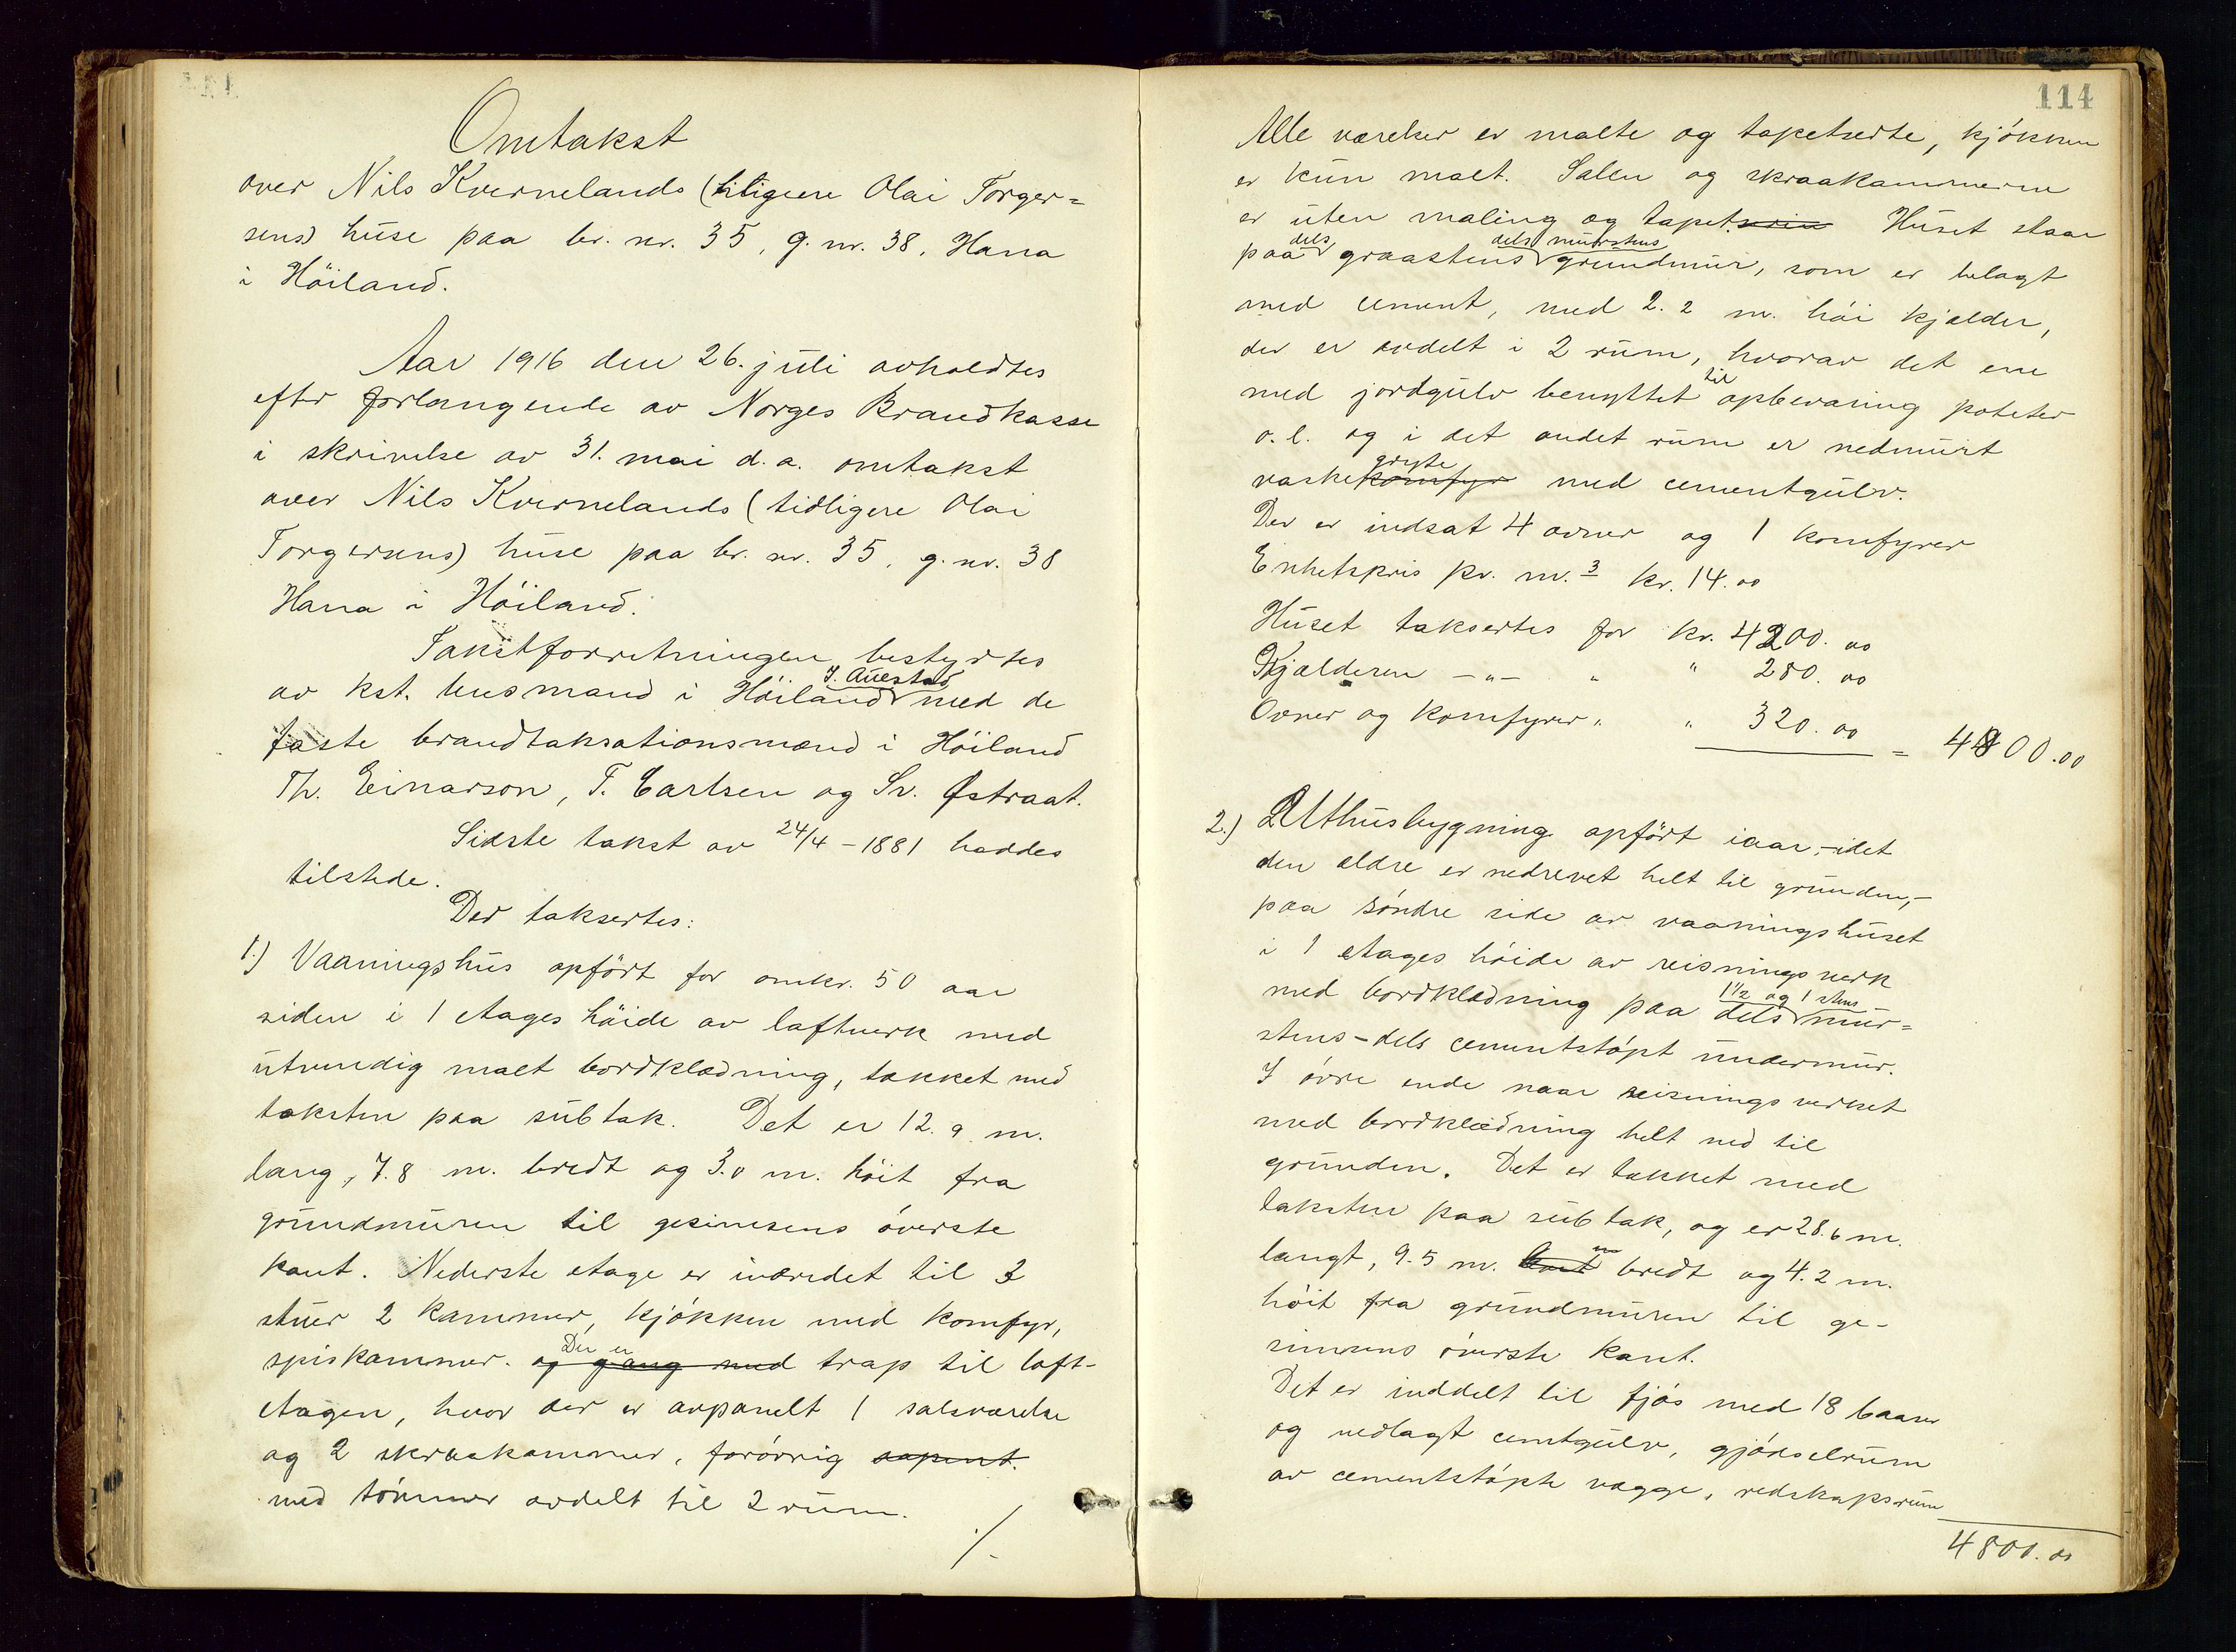 Omtakst
over Nils Kvernelands (tiligere Olai Torger=
sens) huse paa br. nr. 35, g. nr. 38, Hana
i Höiland.
Aar 1916 den 26. juli avholdtes
efter forlangende av Norges Brandkasse
i skrivelse av 31. mai d. a. omtakst
over Nils Kvernelands (tidligere Olai
Torgersens) huse paa br. nr. 35, g. nr. 38
Hana i Höiland.
Takstforretningen bestyrtes
J. Auestad
av kst. lensmand i Höiland med de
faste brandtaksationsmænd i Höiland
Th. Einarson, T. Carlsen og Sv. Østraat.
Sidste takst av 24/4 - 1881 haddes
tilstede.
Der taksertes:
1.) Vaaningshus opfört for omkr. 50 aar
siden i 1 etages höide av laftverk med
utvendig malt bordklædning, tækket med
taksten paa subtak. Det er 12.9 m.
lang, 7.8 m. bredt og 3.0 m. höit fra
grundmuren til gesimsens överste
kant. Nederste etage er inredet til 3
stuer 2 kammer, kjökken med komfyr,
Der er
spiskammer. og gang med trap til loft-
etagen, hvor der er avpanelt 1 salsværelse
og 2 skraakammer, forövrig aapent.
med tömmer avdelt til 2 rum.
./.
114
Alle værelser er malte og tapetserte, kjökken
er kun malt. Salen og skraakammerne
er uten maling og tapet. Huset staar
dels dels murstens
paa graastens grundmur, som er belagt
med cement, med 2.2 m. höi kjælder,
der er avdelt i 2 rum, hvorav det ene
til
med jordgulv benyttet opbevaring poteter
o. l. og i det andet rum er nedmurt
gryte
vaskekomfyr med cementgulv.
Der er indsat 4 ovner og 1 komfyrer
Enhetspris pr. m.3 kr. 14.00
Huset taksertes for kr. 4200.00
Kjælderen -"- " " 280.00
Ovner og komfyrer " " 320.00 = 4800.00
2.) Uthusbygning opfört iaar, - idet
den ældre er nedrevet helt til grunden, -
paa söndre side av vaaningshuset
i 1 etages höide av reisningsverk
1 1/2 og 1 stens
med bordklædning paa dels mur=
stens - dels cementstöpt undermur.
I övre ende naar reisningsverket
med bordklædning helt ned til
grunden. Det er tækket med
taksten paa subtak, og er 28.6 m.
langt, 9.5 m. bredt og 4.2 m.
höit fra grundmuren til ge-
simsens överste kant.
Det er inddelt til fjös med 18 baaser
og nedlagt cemtgulv, gjödselrum
av cementstöpte vægge, redskapsrum
4800.00